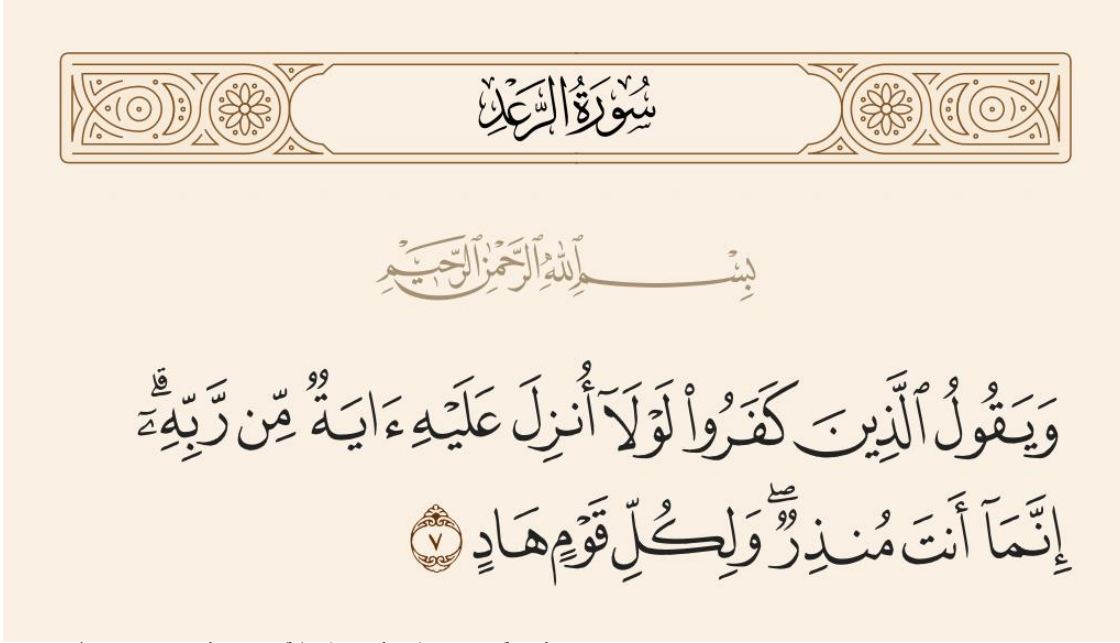 سُورَةُ الرَّعْدِ
بِسْمِ ٱللَّهِ ٱلرَّحْمَٰنِ ٱلرَّحِيمِ
وَيَقُولُ ٱلَّذِينَ كَفَرُوا۟ لَوْلَآ أُنزِلَ عَلَيْهِ ءَايَةٌ مِّن رَّبِّهِۦٓ ۗ
إِنَّمَآ أَنتَ مُنذِرٌ ۖ وَلِكُلِّ قَوْمٍ هَادٍ ٧